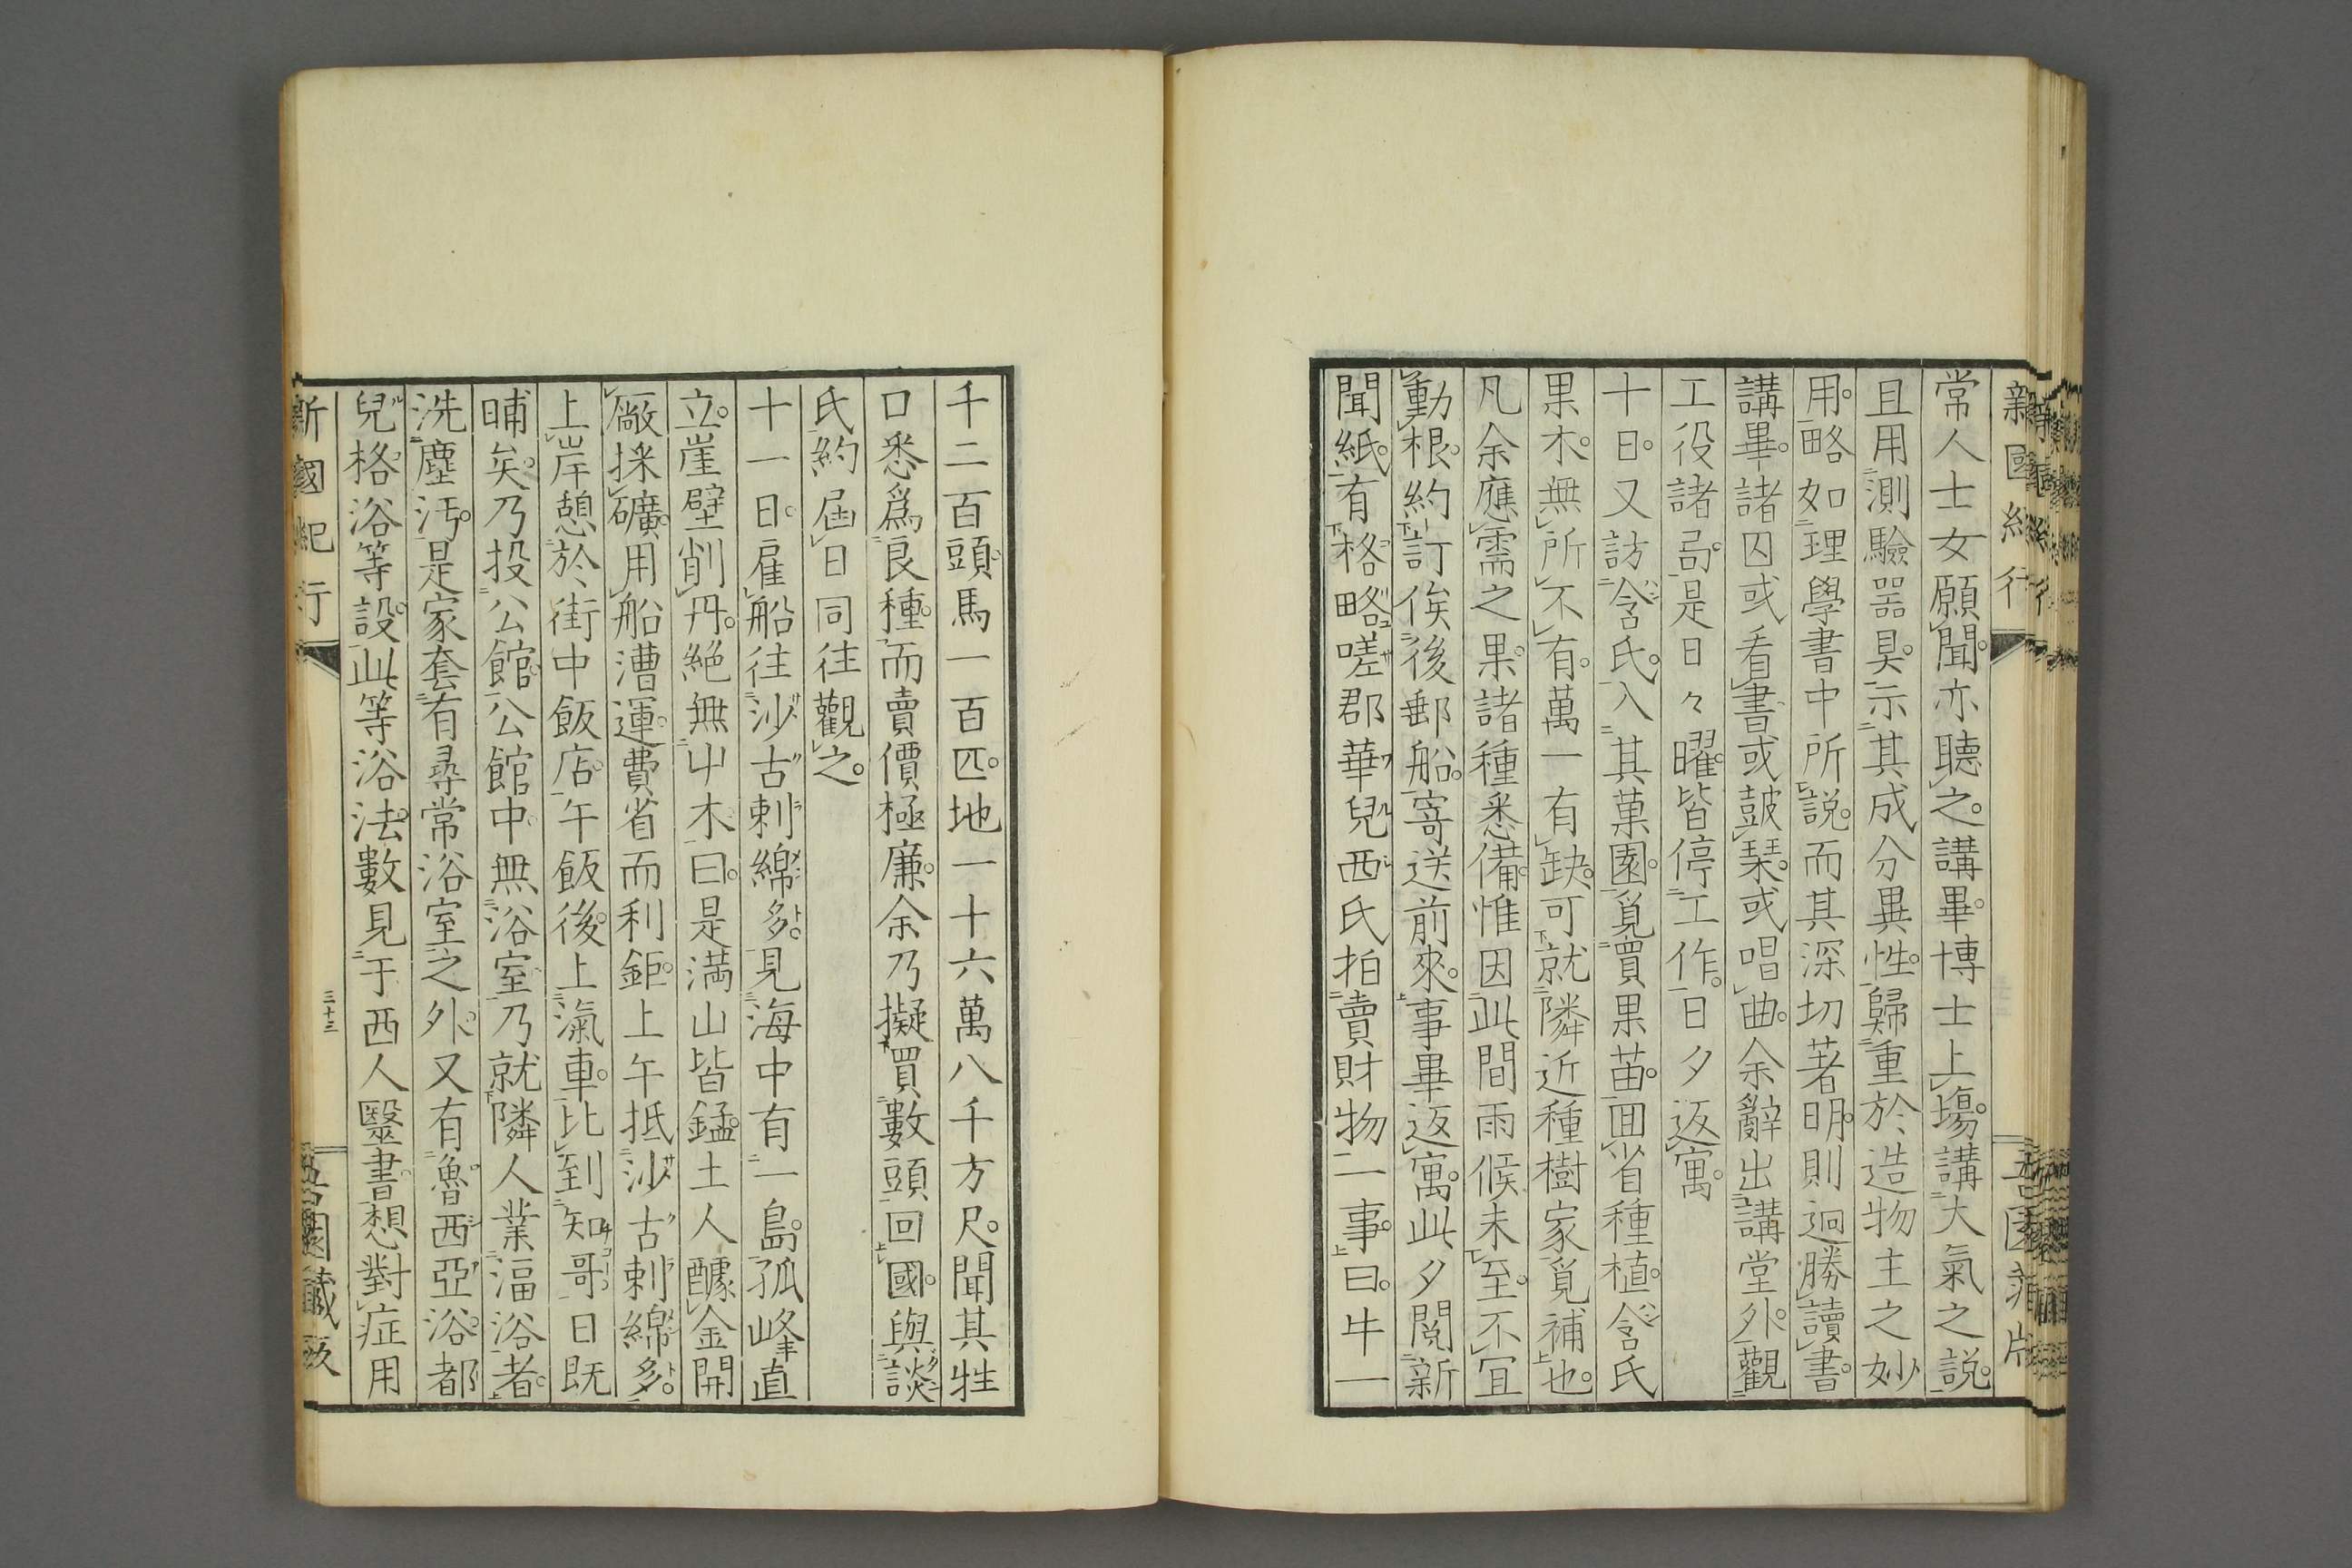 常人士女願聞亦聽之。講畢。博士上塲。講大氣之說。
且用測驗器具。示其成分異性。歸重於造物主之妙
用。略如理學書中所說。而其深切著明。則迥勝讀書。
講畢。諸囚或看書或皷琹。或唱曲。余辭出講堂外。觀
工役諸局。是日々曜。皆停工作。日夕返寓。
十日。又訪含氏。入其菓園。覓買果苗。囬省種植。含氏
果木。無所不有。萬一有缺。可就隣近種樹家覓補也。
凡余應需之果。諸種悉備。惟因此間雨候未至。不冝
動根。約訂俟後郵船。寄送前來。事畢返寓。此夕閱新
聞紙。有格略嗟郡華兒西氏拍賣財物一事。曰。牛一
千二百頭。馬一百匹。地一十六萬八千方尺。聞其牲
口悉爲良種。而賣價極廉。余乃擬買數頭回國。與談
氏約屆日同往觀之。
十一日。雇船往沙古剌綿多。見海中有一島。孤峰直
立。崖壁削丹。絕無屮木。曰。是滿山皆錳。土人醵金開
廠採礦。用船漕運。費省而利鉅。上午抵沙古剌綿多。
上岸憩於街中飯店。午飯後。上滊車。比到知哥。日既
晡矣。乃投公館。公館中。無浴室。乃就隣人業湢浴者。
洗塵汚。是家套有尋常浴室之外。又有魯西亞浴。都
兒格浴等設。此等浴法。數見于西人醫書。想對症用
新國紀行
三十三